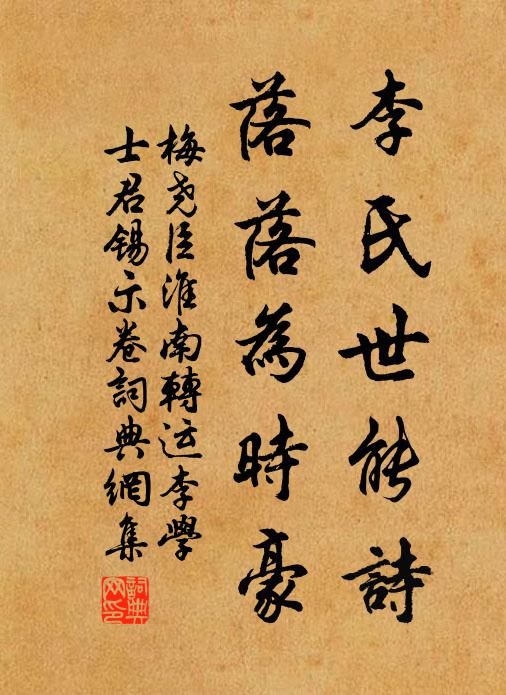 李氏世能詩
落落為時豪
梅堯臣淮南轉运李學
士君锡示卷詞典網集
詞典网印